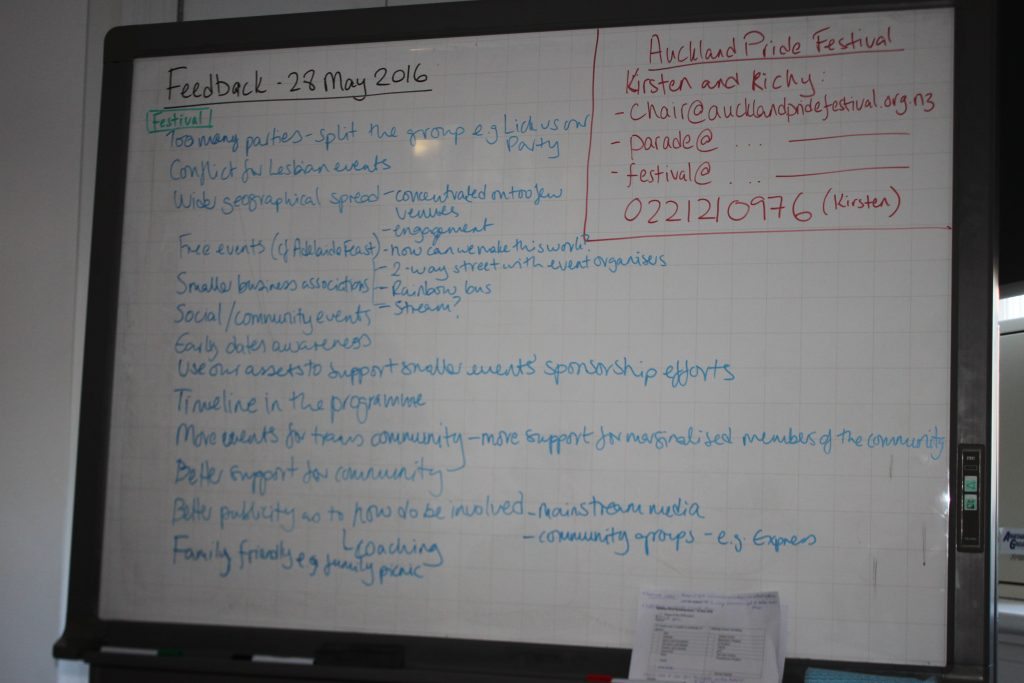 Feedback - 28 May 2016
Festival
Too many parties - split the group e.g Lick us out
Party
Conflict for Lesbian events
Wide geographical spread - concentrated onto few
venues
- engagement
Free events (cf Adelaide Feast) - how can we make this work?
- 2-way street with event organisers
Smaller business associations - Rainbow bus
Social/community events - Stream?
Early dates awareness
Use our assets to support smaller events' sponsorship efforts
Timeline in the programme
More events for trans community - more support for marginalised members of the community
Better support for community
Better publicity as to how do be involved - mainstream media
- community groups - e.g. Express
coaching
Family friendly e.g family picnic
Auckland Pride Festival
Kirsten and Richy:
- Chair@aucklandpridefestival.org.nz
- parade@ ...
- festival@ ...
0221210976 (Kirsten)